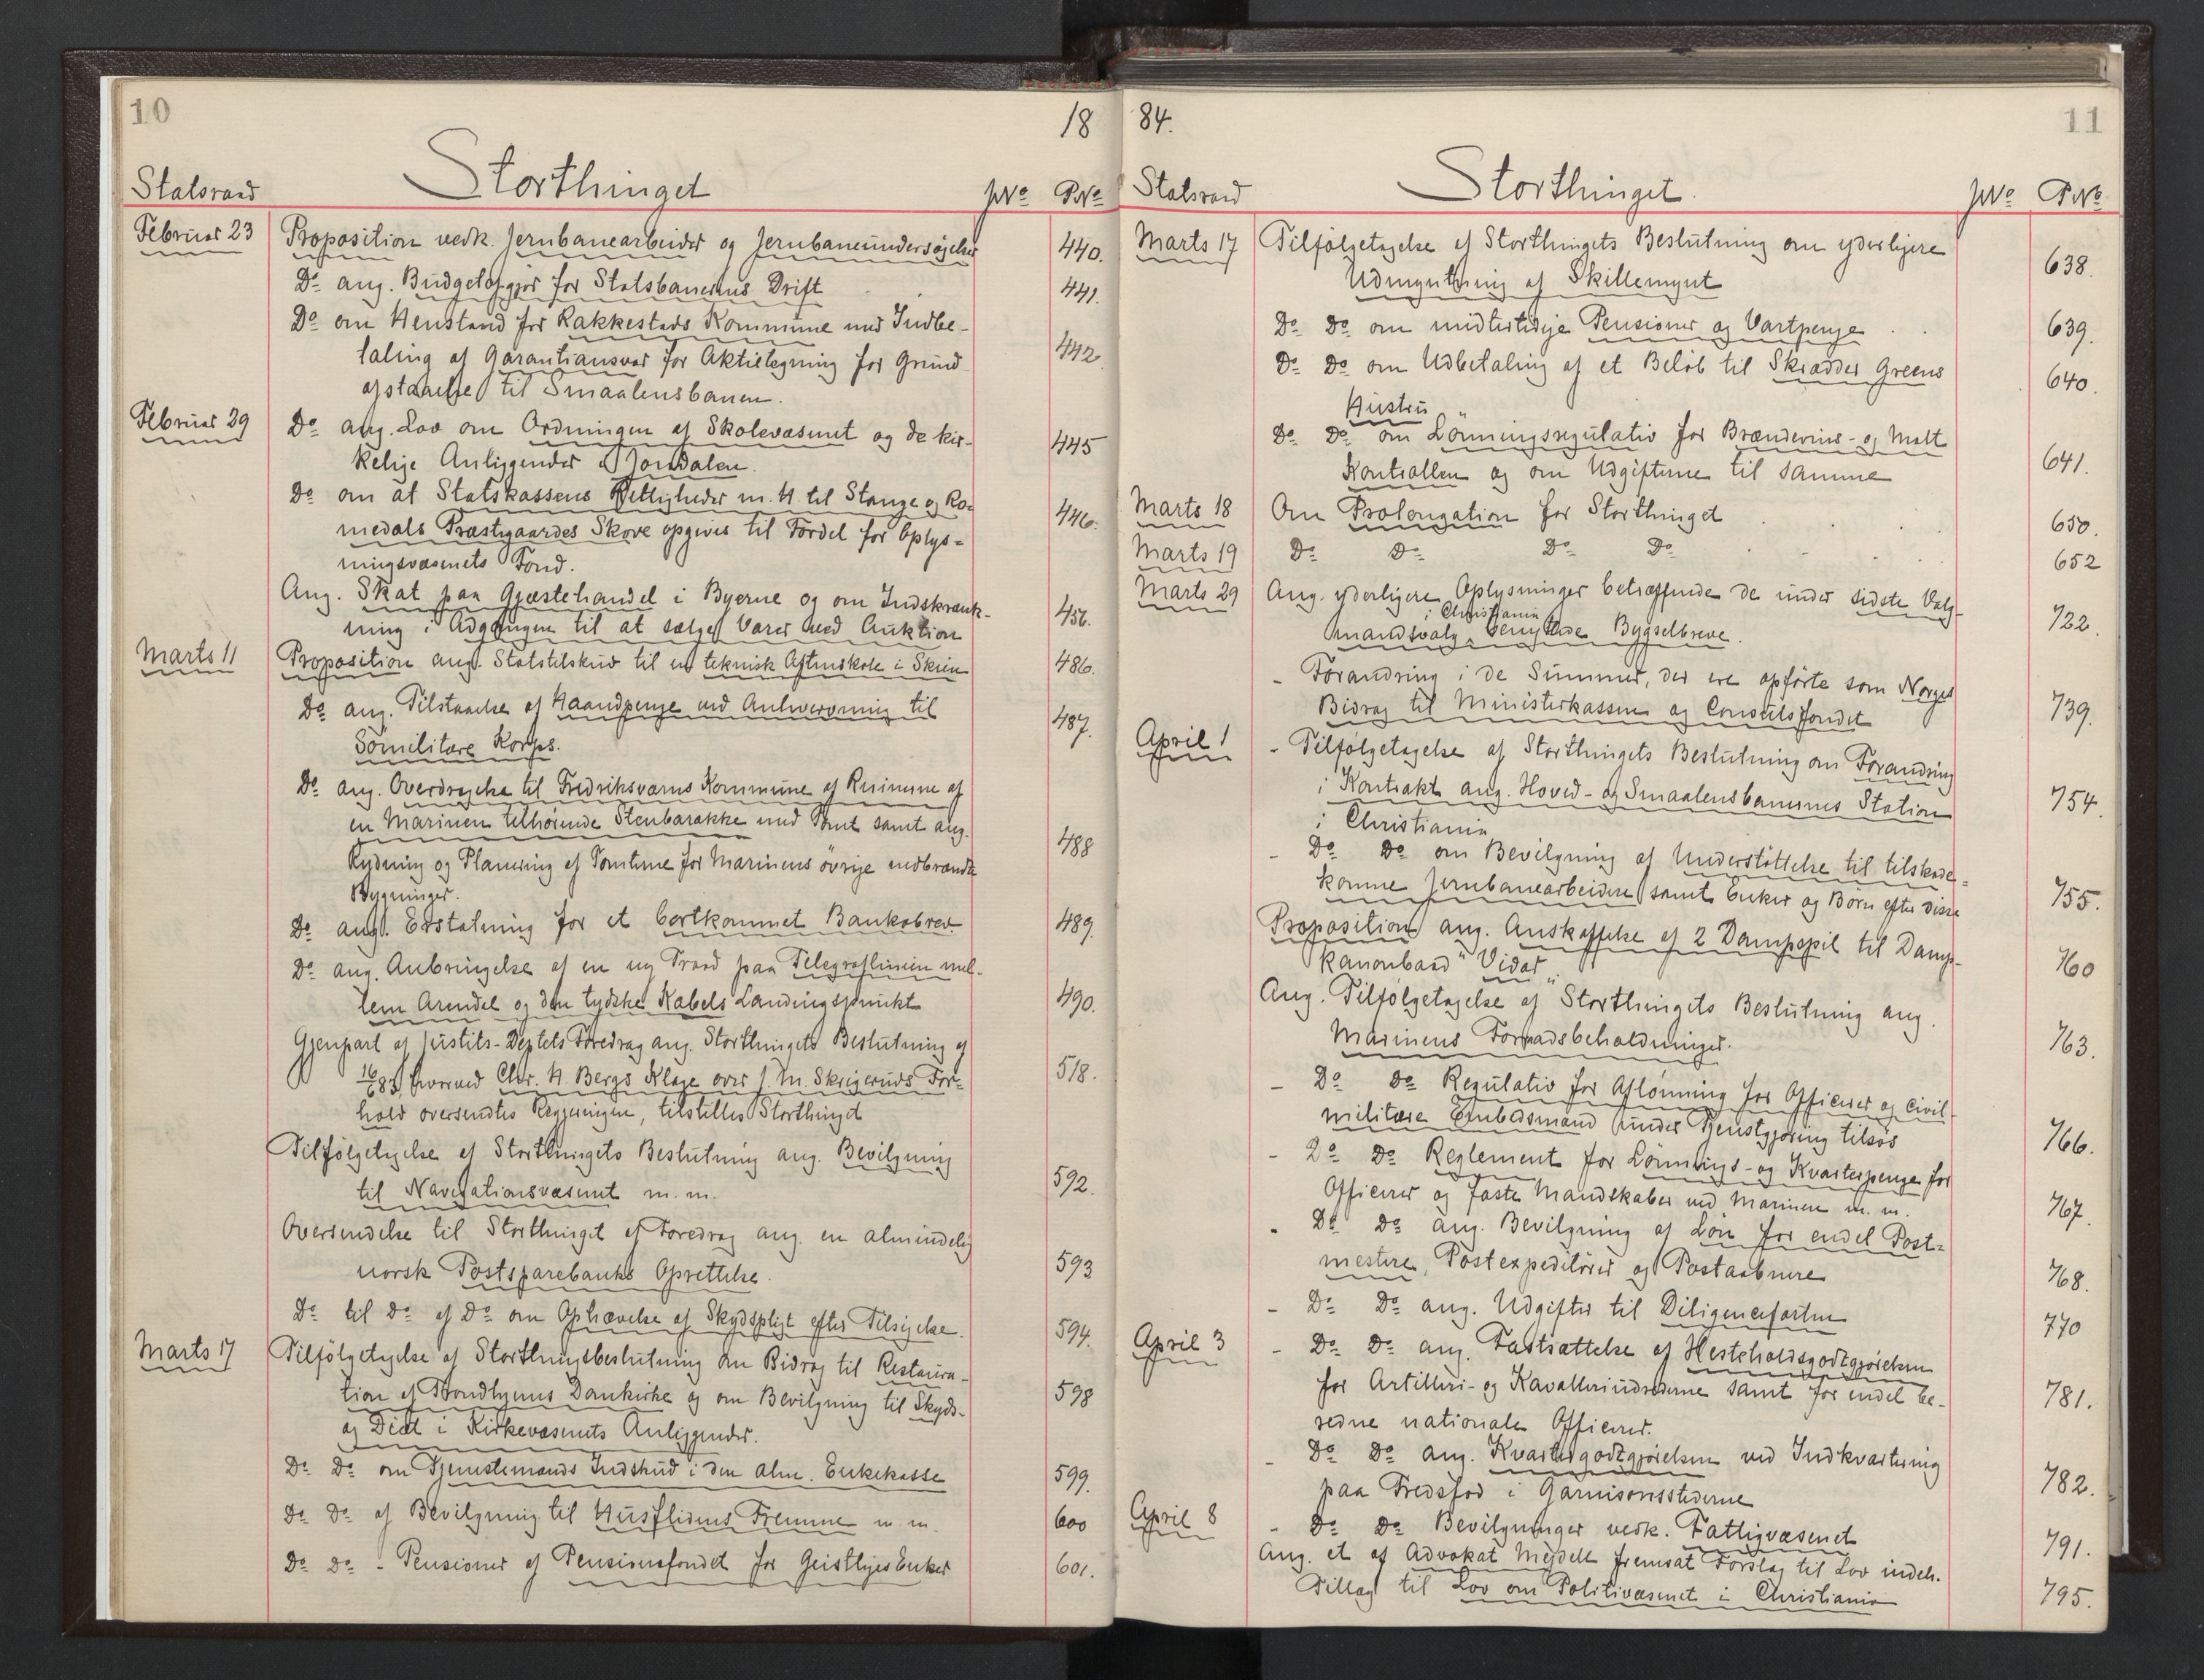 10
18
Statsraad
Storthinget
JNo PNo
Februar 23
Proposition vedk. Jernbanearbeider og Jernbaneundersøgelser
440.
Do ang. Budgetopgjør for Statsbanernes Drift
441.
Do om Henstand for Rakkestads Kommune med Indbe-
taling af Garantiansvar for Aktietegning for Grund-
442
afstaaelse til Smaalensbanen.
Februar 29
Do ang. Lov om Ordningen af Skolevæsenet og de kir-
445
kelige Anliggender i Jondalen.
Do om at Statskassens Rettigheder m. H. til Stange og Ro-
446.
medals Præstegaardes Skove opgives til Fordel for Oplys-
ningsvæsenets Fond.
Ang. Skat paa Gjæstehandel i Byerne og om Indskrænk-
456.
ning i Adgangen til at sælge Varer ved Auktion
Marts 11
Proposition ang. Statstilskud til en teknisk Aftenskole i Skien
486.
Do ang. Tilstaaelse af Haandpenge ved Anhverving til
487.
Sømilitære Korps.
Do ang. Overdragelse til Fredriksværns Kommune af Ruinerne af
en Marinen tilhørende Stenbarakke med Tomt samt ang.
488
Rydning og Planering af Tomterne for Marinens øvrige nedbrændte
Bygninger.
Do ang. Erstatning for et bortkommet Bankobrev
489.
Do ang. Anbringelse af en ny Traad paa Telegraflinien mel-
lem Arendal og den tydske Kabels Landingspunkt
490.
Gjenpart af Justits-Deptets Foredrag ang. Storthingets Beslutning af
16/6 83, hvorved Chr. H Bergs Klage over J. M. Skrigeruds For-
518.
hold oversendtes Regjeringen, tilstilles Storthinget
Tilfølgetagelse af Storthingets Beslutning ang. Bevilgning
592.
til Navigationsvæsenet m. m.
Oversendelse til Storthinget af Foredrag ang. en almindelig
593
norsk Postsparebanks Oprettelse.
Do til Do af Do om Ophævelse af Skydspligt efter Tilsigelse.
594.
Marts 17
Tilfølgetagelse af Storthingsbeslutning om Bidrag til Restaura-
tion af Trondhjems Domkirke og om Bevilgning til Skyds-
598
og Diæt i Kirkevæsenets Anliggender.
Do Do om Tjenestemænds Indskud i den alm. Enkekasse
599.
Do Do af Bevilgning til Husflidens Fremme m m.
600
Do Do - Pensioner af Pensionsfondet for Geistliges Enker
601.
84.
11
Statsraad
Storthinget
JNo PNo
Marts 17
Tilfølgetagelse af Storthingets Beslutning om yderligere
638.
Udmyntning af Skillemynt
Do Do om midlertidige Pensioner og Vartpenge
639.
Do Do om Udbetaling af et Beløb til Skrædder Greens
640.
Hustru
Do Do om Lønningsregulativ for Brændevins- og Malt
641.
Kontrollen og om Udgifterne til samme
Marts 18
Om Prolongation for Storthinget
650.
Marts 19
Do Do Do Do
652
Marts 29
Ang. yderligere Oplysninger betræffende de under sidste Valg-
722.
i Christiania
mandsvalg benyttede Bygselbreve.
- Forandring i de Summer, der ere opførte som Norges
739.
Bidrag til Ministerkassen og Consulsfondet
April 1
- Tilfølgetagelse af Storthingets Beslutning om Forandring
i Kontrakt ang. Hoved- og Smaalensbanernes Station
754.
i Christiania
- Do Do om Bevilgning af Understøttelse til tilskade-
komne Jernbanearbeidere samt Enker og Børn efter disse
755.
Proposition ang. Anskaffelse af 2 Dampspil til Damp-
760
kanonbaad "Vidar"
Ang. Tilfølgetagelse af Storthingets Beslutning ang.
763.
Marinens Forraadsbeholdninger.
- Do Do Regulativ for Aflønning for Officerer og Civil-
militære Embedsmænd under Tjenstgjøring tilsøs
766.
- Do Do Reglement for Lønnings- og Kvarterpenge for
Officerer og faste Mandskaber ved Marinen m. m.
767.
- Do Do ang. Bevilgning af Løn for endel Post-
mestere, Postexpeditører og Postaabnere
768.
- Do Do ang. Udgifter til Diligencefarten
770
April 3
- Do Do ang. Fastsættelse af Hesteholdsgodtgjørelsen
for Artilleri- og Kavallerirederne samt for endel be-
781.
redne nationale Officerer.
- Do Do ang. Kvartergodtgjørelsen ved Indkvartering
782.
paa Fredsfod i Garnisonsstederne
April 8
- Do Do Bevilgninger vedk. Fattigvæsenet
791.
Ang. et af Advokat Mejdell fremsat Forslag til Lov indeh.
Tillæg til Lov om Politivæsenet i Christiania
795.